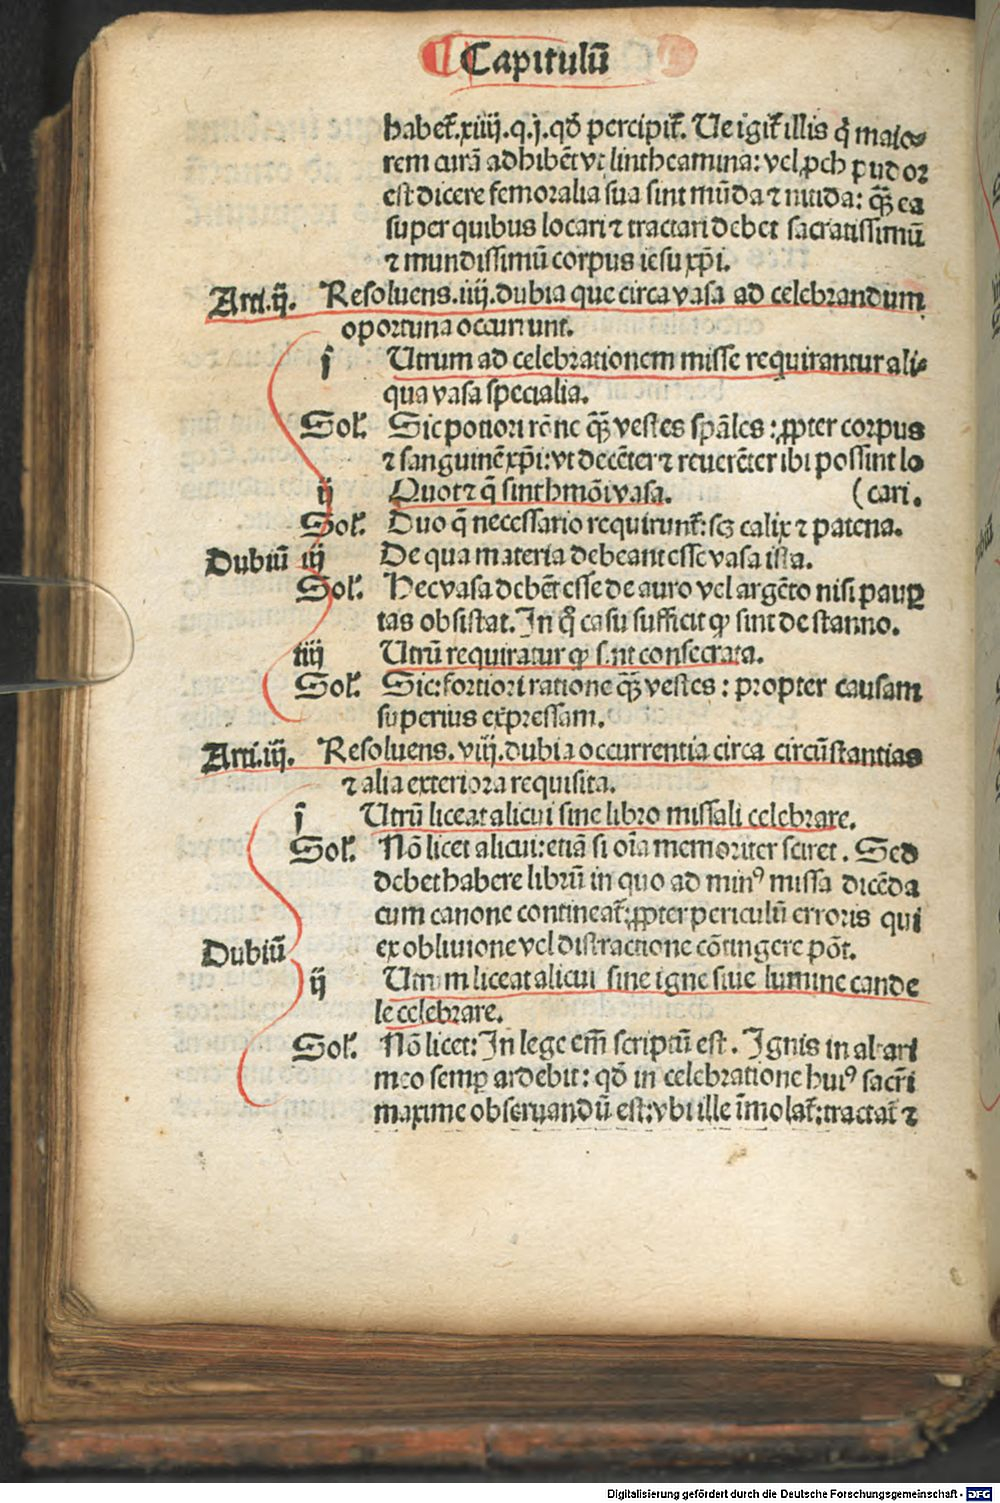 Capitulū
habet᷑.xiiij.q.j.qđ percipit᷑. Ue igit᷑ illis q̇ maio-
rem curā adhibēt vt lintheamina: vel ꝓch pudor
est dicere femoralia sua sint mūda ⁊ nitida: q̃ꝫ ea
super quibus locari ⁊ tractari debet sacratissimū
⁊ mundissimū corpus iesu xp̄i.
Arti.ij. Resoluens.iiij.dubia que circa vasa ad celebrandum
oportuna occurrunt.
i Utrum ad celebrationem misse requirantur ali-
qua vasa specialia.
Sol᷑. Sic potiori rōne q̃ꝫ vestes sp̄ales: ꝓpter corpus
⁊ sanguinē xp̄i: vt decēter ⁊ reuerēter ibi possint lo
ij Quot ⁊ q̄ sint hmōi vasa. (cari.
Sol᷑. Duo q̄ necessario requirunt᷑: scꝫ calix ⁊ patena.
Dubiū iij De qua materia debeant esse vasa ista.
Sol᷑. Hec vasa debēt esse de auro vel argēto nisi pauꝑ
tas obsistat. In q̊ casu sufficit ꝙ sint de stanno.
iiij Utrū requiratur ꝙ sint consecrata.
Sol᷑. Sic: fortiori ratione q̃ꝫ vestes: propter causam
superius expressam.
Arti.iij. Resoluens. viij.dubia occurrentia circa circūstantias
⁊ alia exteriora requisita.
i Utrū liceat alicui sine libro missali celebrare.
Sol᷑. Nō licet alicui: etiā si oīa memoriter sciret. Sed
debet habere librū in quo ad minꝰ missa dicēda
cum canone contineat᷑: ꝓpter periculū erroris qui
ex obliuione vel distractione cōtingere pōt.
Dubiū
ij Utrum liceat alicui sine igne siue lumine cande
le celebrare.
Sol᷑. Nō licet: In lege em̄ scriptū est. Ignis in altari
meo semꝑ ardebit: qđ in celebratione huiꝰ sacr̄i
maxime obseruandū est: vbi ille īmolat᷑: tractat᷑ ⁊
Digitalisierung gefördert durch die Deutsche Forschungsgemeinschaft - DFG